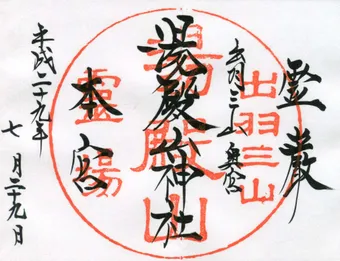 登嶽
出羽三山
出羽三山 奥宮
湯殿山
湯殿山神社
本宮
霊場
平成二十九年
七月二十九日